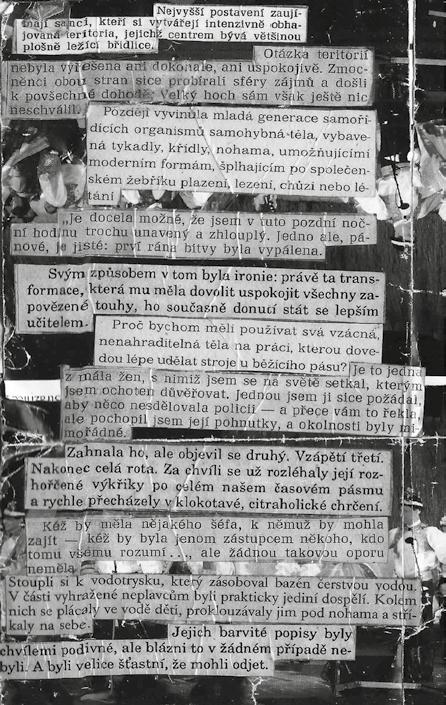 Nejvyšší postavení zaují-
mají samci, kteří si vytvářejí intenzivně obha-
jovaná teritoria, jejichž centrem bývá většinou
plošně ležící břidlice.
Otázka teritorií
nebyla vyřešena ani dokonale, ani uspokojivě. Zmoc-
něnci obou stran sice probírali sféry zájmů a došli
k povšechné dohodě; Velký hoch sám však ještě nic
neschválil.
Později vyvinula mladá generace samoří-
dících organismů samohybná těla, vybave-
ná tykadly, křídly, nohama, umožňujícími
moderním formám, šplhajícím po společen-
ském žebříku plazení, lezení, chůzi nebo lé-
tání
„Je docela možné, že jsem v tuto pozdní noč-
ní hodinu trochu unavený a zhlouplý. Jedno ale, pá-
nové, je jisté: prví rána bitvy byla vypálena.
Svým způsobem v tom byla ironie: právě ta trans-
formace, která mu měla dovolit uspokojit všechny za-
povězené touhy, ho současně donutí stát se lepším
učitelem.
Proč bychom měli používat svá vzácná,
nenahraditelná těla na práci, kterou dove-
dou lépe udělat stroje u běžícího pásu?
Je to jedna
z mála žen, s nimiž jsem se na světě setkal, kterým
jsem ochoten důvěřovat. Jednou jsem ji sice požádal,
aby něco nesdělovala policii — a přece vám to řekla,
ale pochopil jsem její pohnutky, a okolnosti byly mi-
mořádné.
Zahnala ho, ale objevil se druhý. Vzápětí třetí.
Nakonec celá rota. Za chvíli se už rozléhaly její roz-
hořčené výkřiky po celém našem časovém pásmu
a rychle přecházely v klokotavé, citraholické chrčení.
Kéž by měla nějakého šéfa, k němuž by mohla
zajít — kéž by byla jenom zástupcem někoho, kdo
tomu všemu rozumí..., ale žádnou takovou oporu
neměla
Stoupli si k vodotrysku, který zásoboval bazén čerstvou vodou.
V části vyhražené neplavcům byli prakticky jediní dospělí. Kolem
nich se plácaly ve vodě děti, proklouzávaly jim pod nohama a stří-
kaly na sebe.
Jejich barvité popisy byly
chvílemi podivné, ale blázni to v žádném případě ne-
byli. A byli velice šťastní, že mohli odjet.